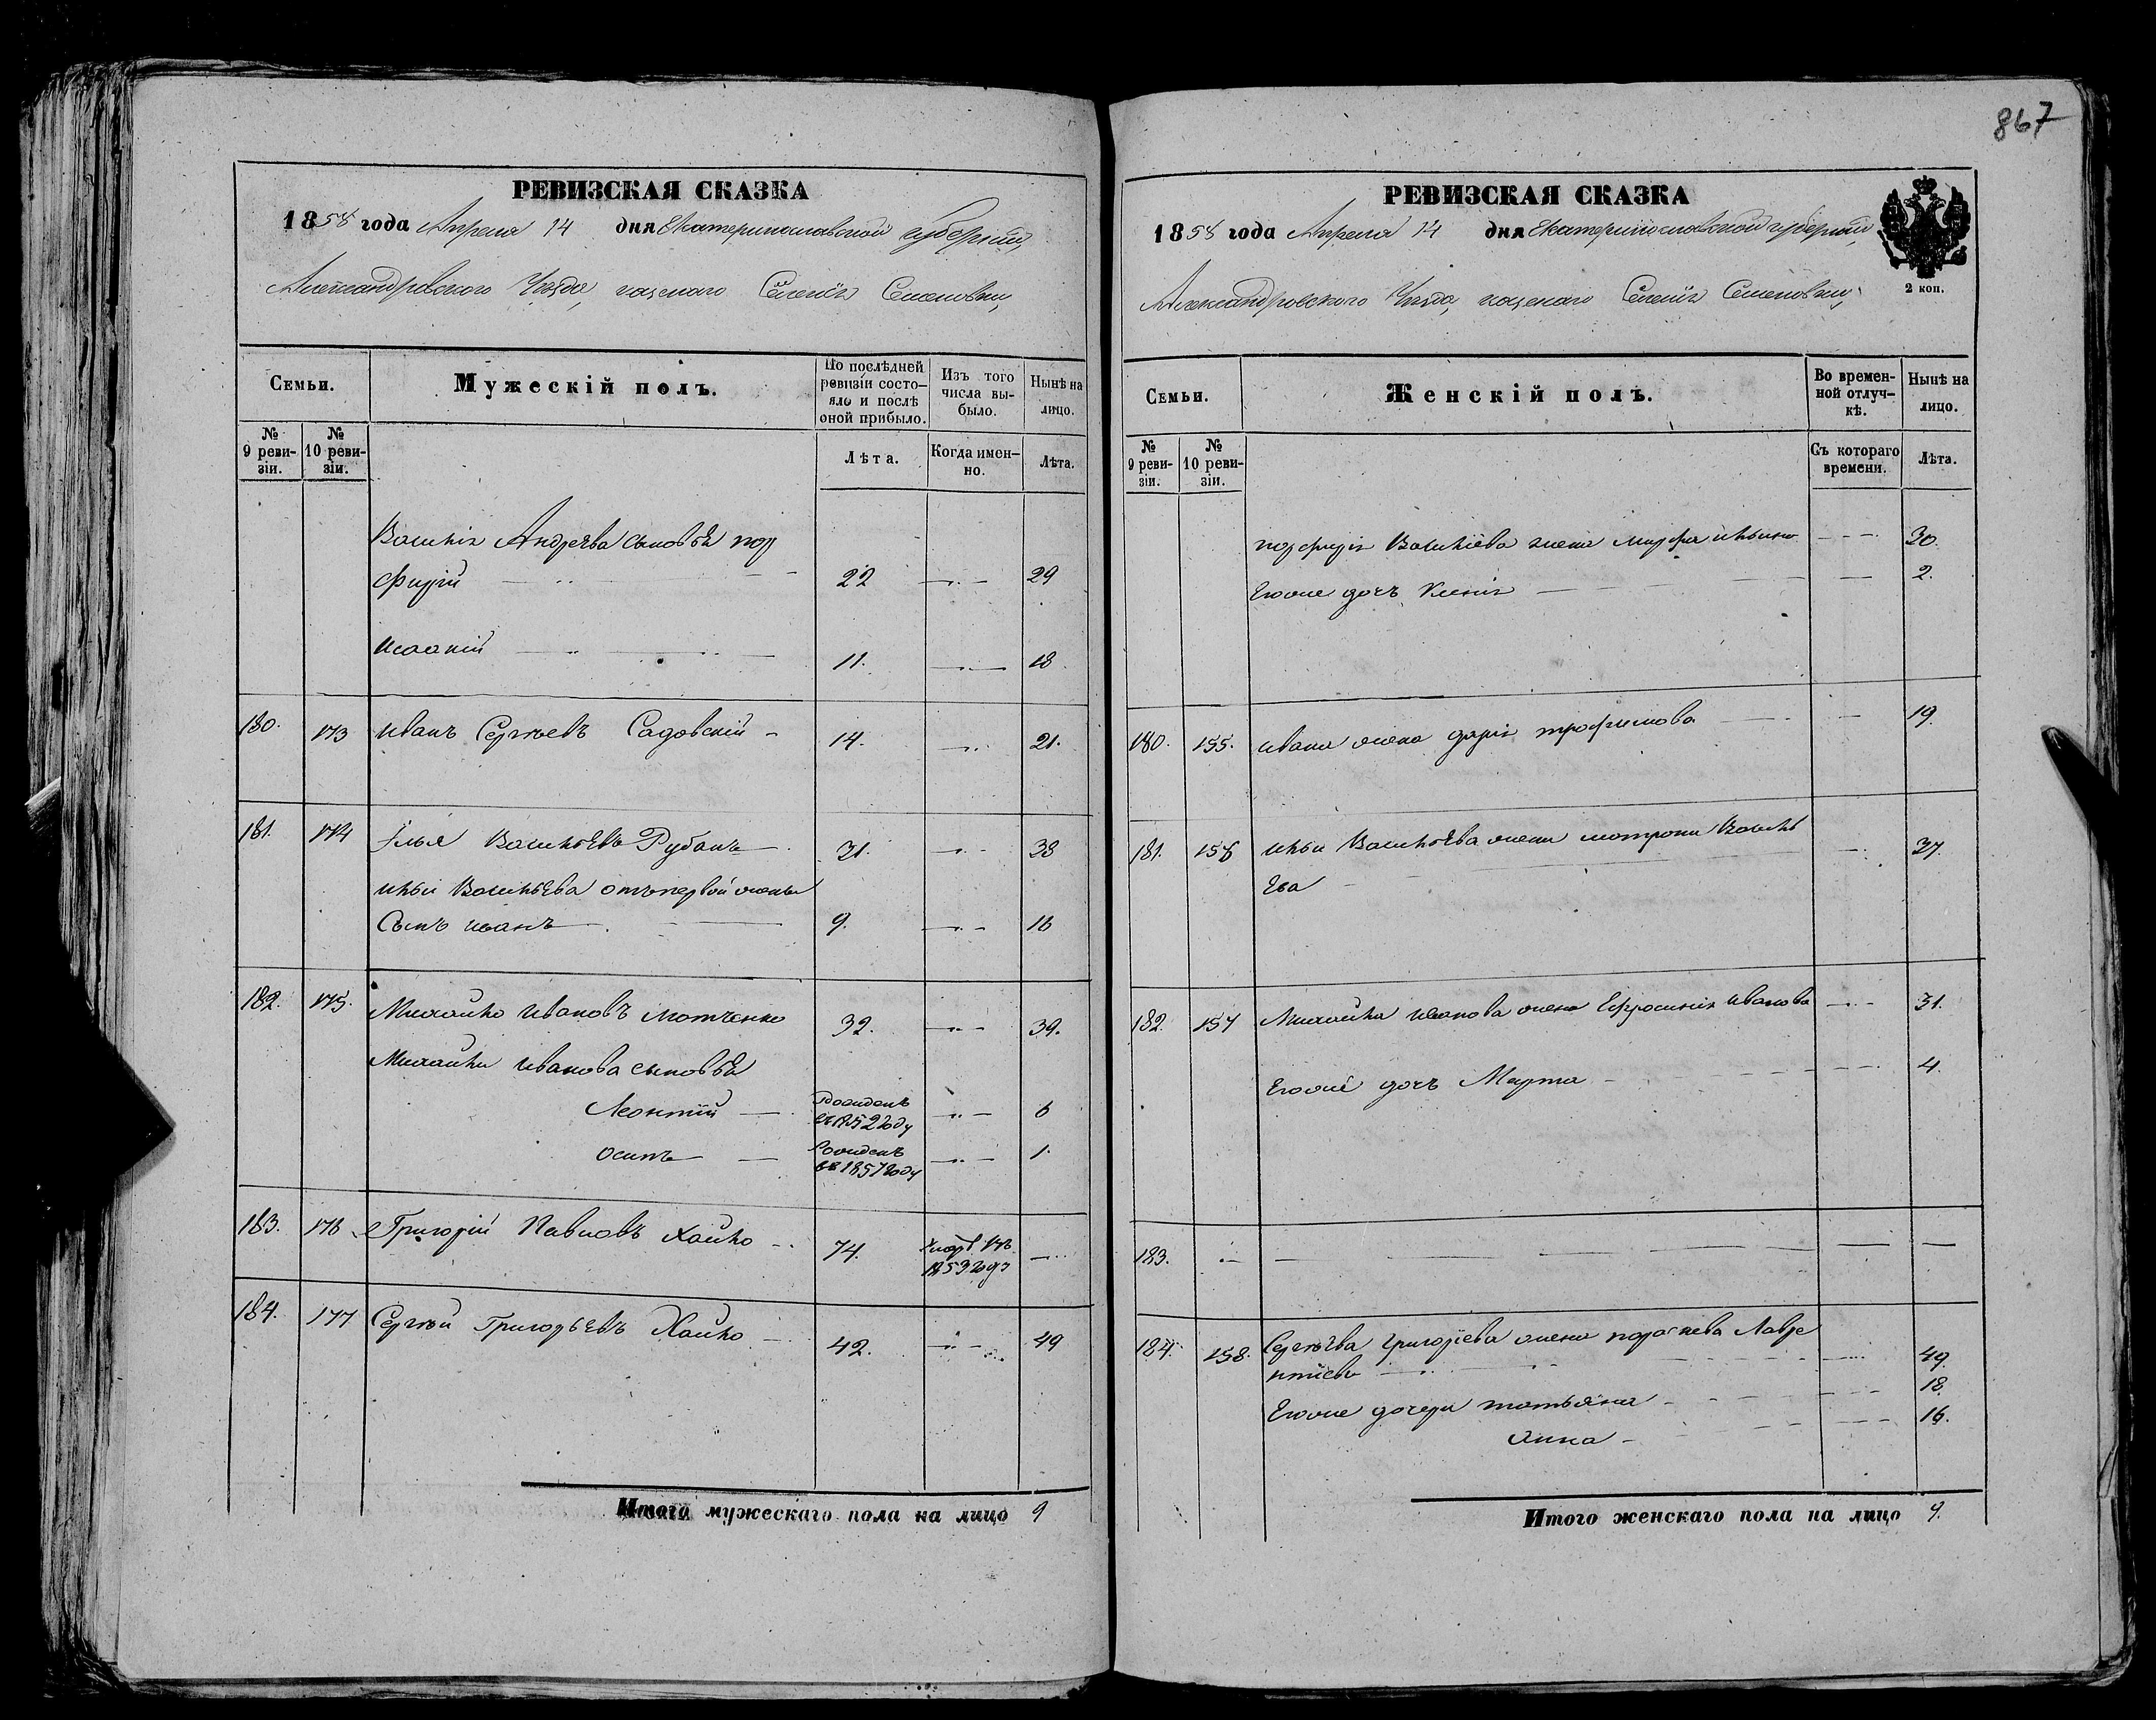 867
РЕВИЗСКАЯ СКАЗКА
1858 года Апреля 14 дня Екатеринославской губерніи,
Александровского Уезда, казенаго Селенія Семеновки,
Семьи.
Мужескій полъ.
По послѣдней ревизіи состо-
яло и послѣ оной прибыло.
Изъ того числа вы-
было.
Нынѣ на лицо.
№ 9 реви-
зіи.
№ 10 реви-
зіи.
Лѣта.
Когда имен-
но.
Лѣта.
Василія Андреева сыновья пор
фирій 22 29
Исакій 11. 18
180. 173 Иванъ Сергѣевъ Садовскій 14. 21.
181. 174 Илья Васильевъ Рубанъ 31. 38
Ильи Васильева отъ первой жены
Сынъ Иванъ 9. 16
182. 175. Михайло Ивановъ Матченко 32. 39.
Михайлы Иванова сыновья
Леонтій Рожденъ въ 1852 году 6
Осипъ Рожденъ въ 1857 году 1.
183. 176 Григорій Павловъ Хайло 74. 1853 года
184. 177 Сергѣй Григорьевъ Хайло 42. 49
Итого мужескаго пола на лицо 9
РЕВИЗСКАЯ СКАЗКА
1858 года Апреля 14 дня Екатеринославской губерніи,
Александровского Уезда, казенаго Селенія Семеновки,
2 коп.
Семьи.
Женскій полъ.
Во времен-
ной отлуч-
кѣ.
Нынѣ на лицо.
№ 9 реви-
зіи.
№ 10 реви-
зіи.
Съ котораго времени.
Лѣта.
порфирія Василіева жена Марфа Ильина 30.
Егоже дочь Ксенія 2.
180. 155. Ивана жена дарія трофимова 19.
181. 156 Ильи Васильева жена матрона Василь 37.
ева
182. 157 Михайла Иванова жена Ефросинія Иванова 31.
Егоже дочь Марта 4.
183.
184. 158. Сергѣева Григоріева жена параскева Лавре
нтіева 49.
Егоже дочери татьяна 18.
Анна 16.
Итого женскаго пола на лицо 9.